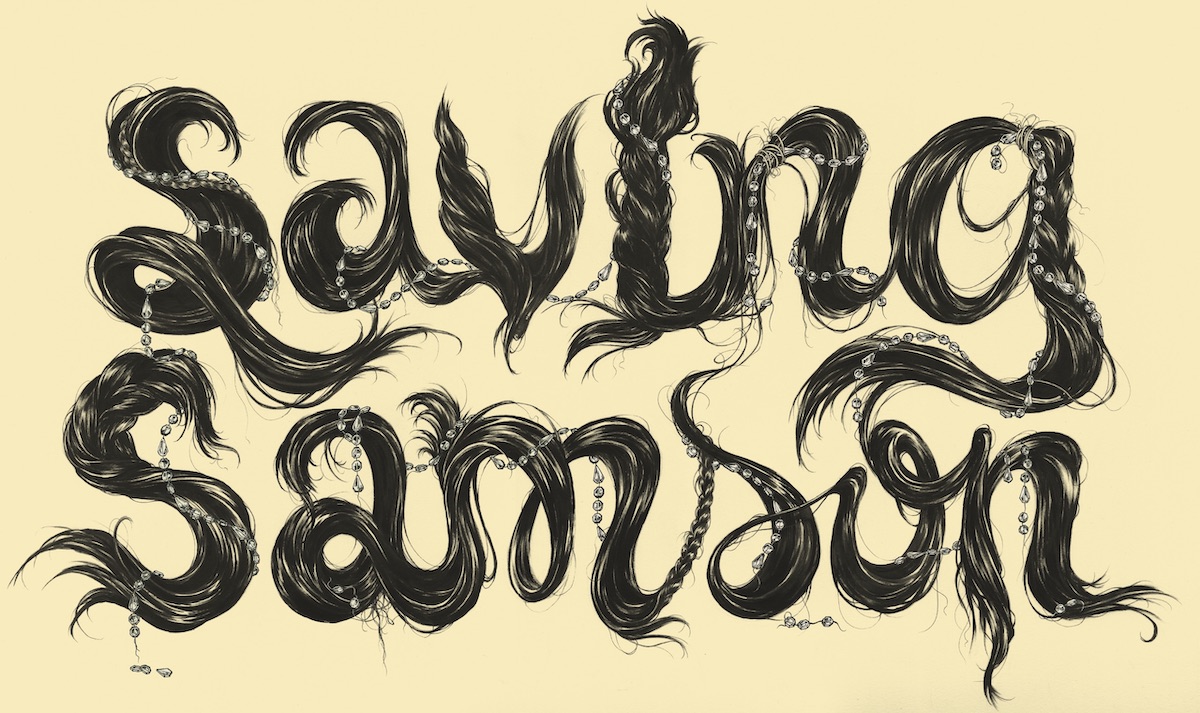 Saving
Samson